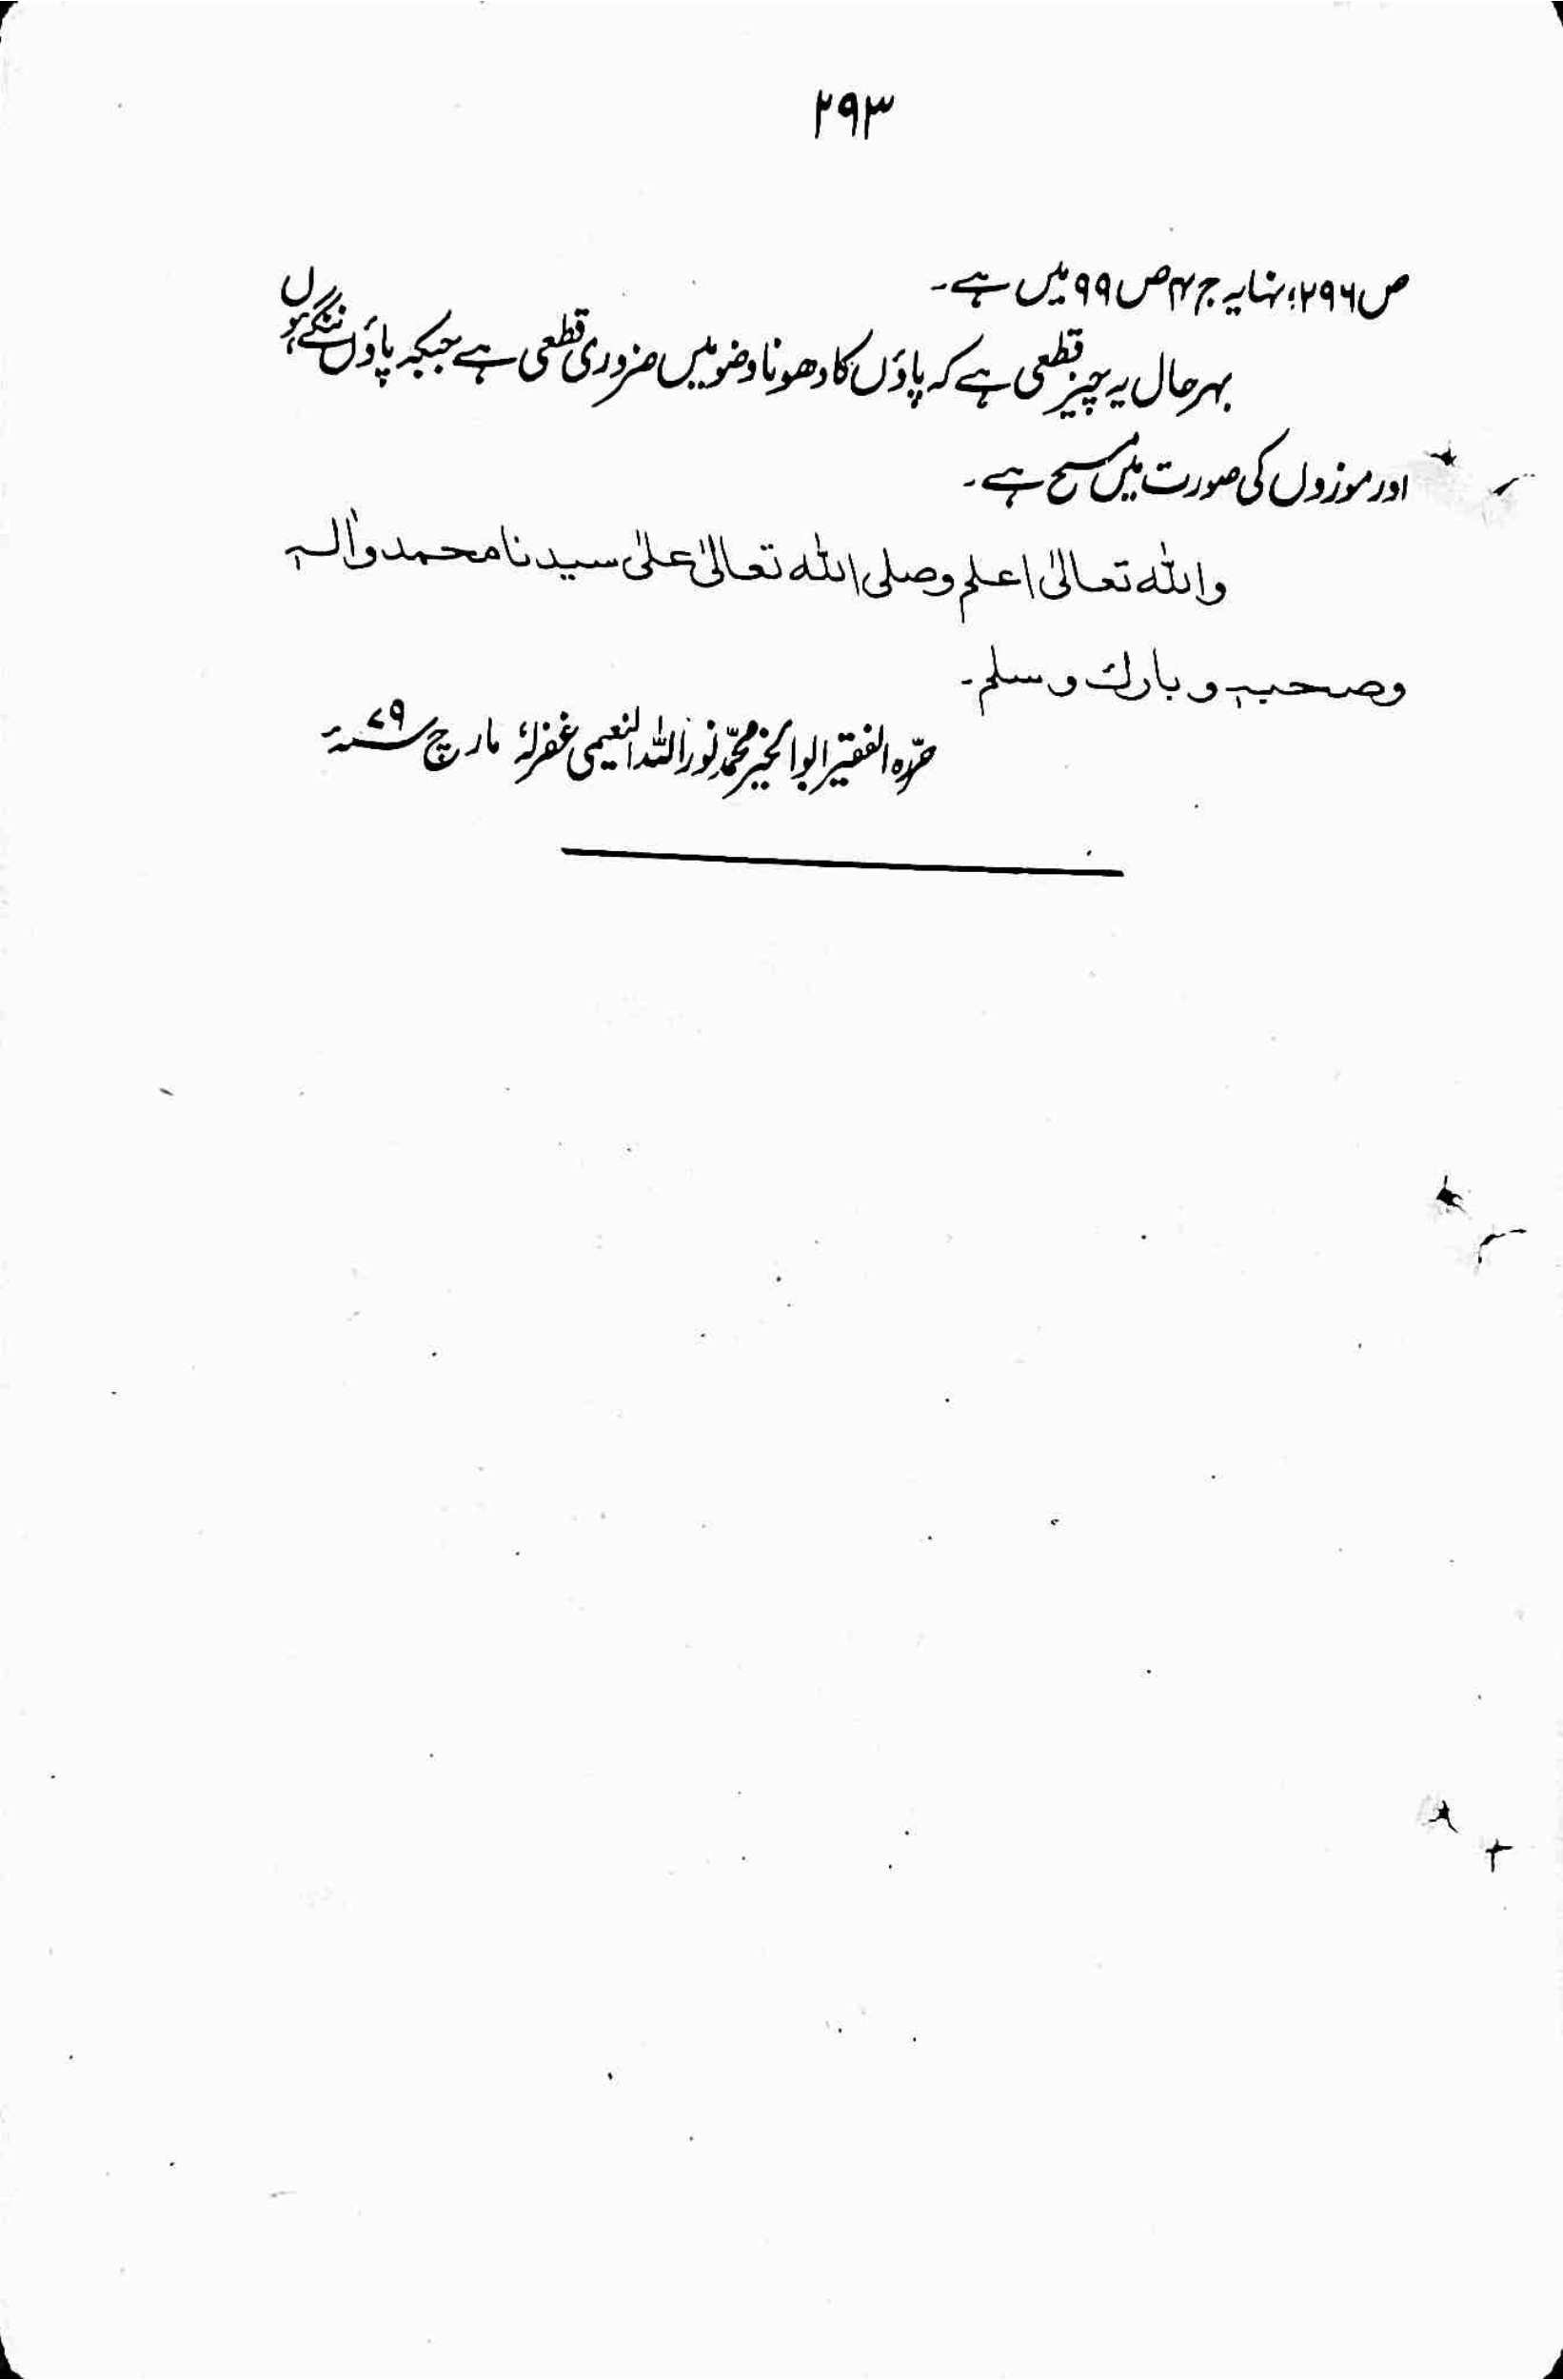 ۲۹۳
ص ۲۹۶؛ نہایہ ج ۴ ص ۹۹ میں ہے۔
بہرحال یہ چیز قطعی ہے کہ پاؤں کا دھونا وضو میں ضروری قطعی ہے جبکہ پاؤں ننگے ہوں
اور موزوں کی صورت میں مسح ہے۔
والله تعالیٰ اعلم وصلی الله تعالیٰ علیٰ سیدنا محمد وآلہٖ
وصحبہٖ وبارك وسلم۔
حرّرہ الفقیر ابوالخیر محمّد نور اللہ النعیمی غفرلہٗ مارچ ۷۹ سنہٴ